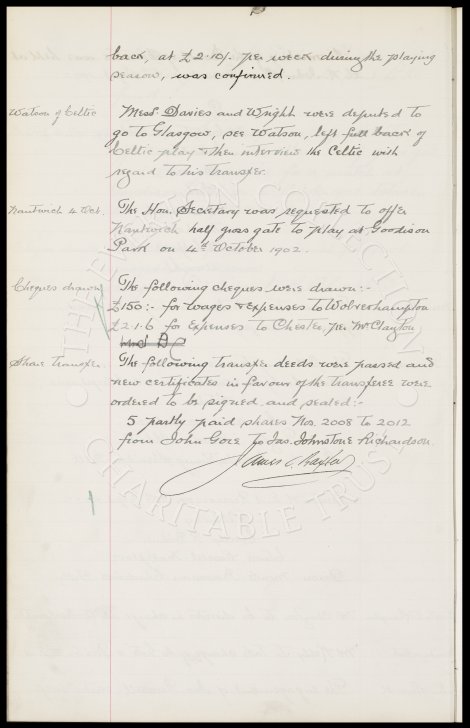 back, at £2.10/- per week during the playing
season, was confirmed.
Watson of Celtic
Mess. Davies and Wright were deputed to
go to Glasgow, see Watson, left full back of
Celtic play & then interview the Celtic with
regard to his transfer.
Nantwich 4 Oct.
The Hon. Secretary was requested to offer
Nantwich half gross gate to play at Goodison
Park on 4th October 1902.
Cheques drawn
The following cheques were drawn:-
£150:- for wages & expenses to Wolverhampton
£2.1.6 for expenses to Chester, per Mr. Clayton
Share transfer
The following transfer deeds were passed and
new certificates in favour of the transferee were
ordered to be signed and sealed:-
5 partly paid shares Nos. 2008 to 2012
from John Gore to Jas. Johnstone Richardson
James C. Baxter
THE EVERTON COLLECTION
CHARITABLE TRUST